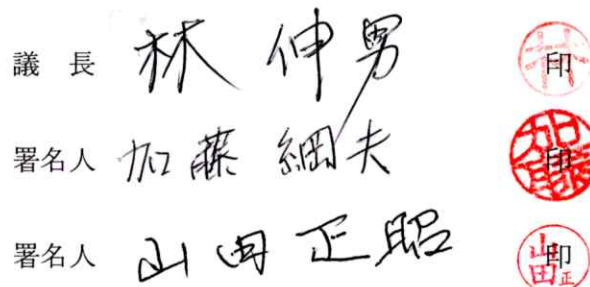 議 長 林 伸男 印
署名人 加藤 綱夫 印
署名人 山田 正昭 印